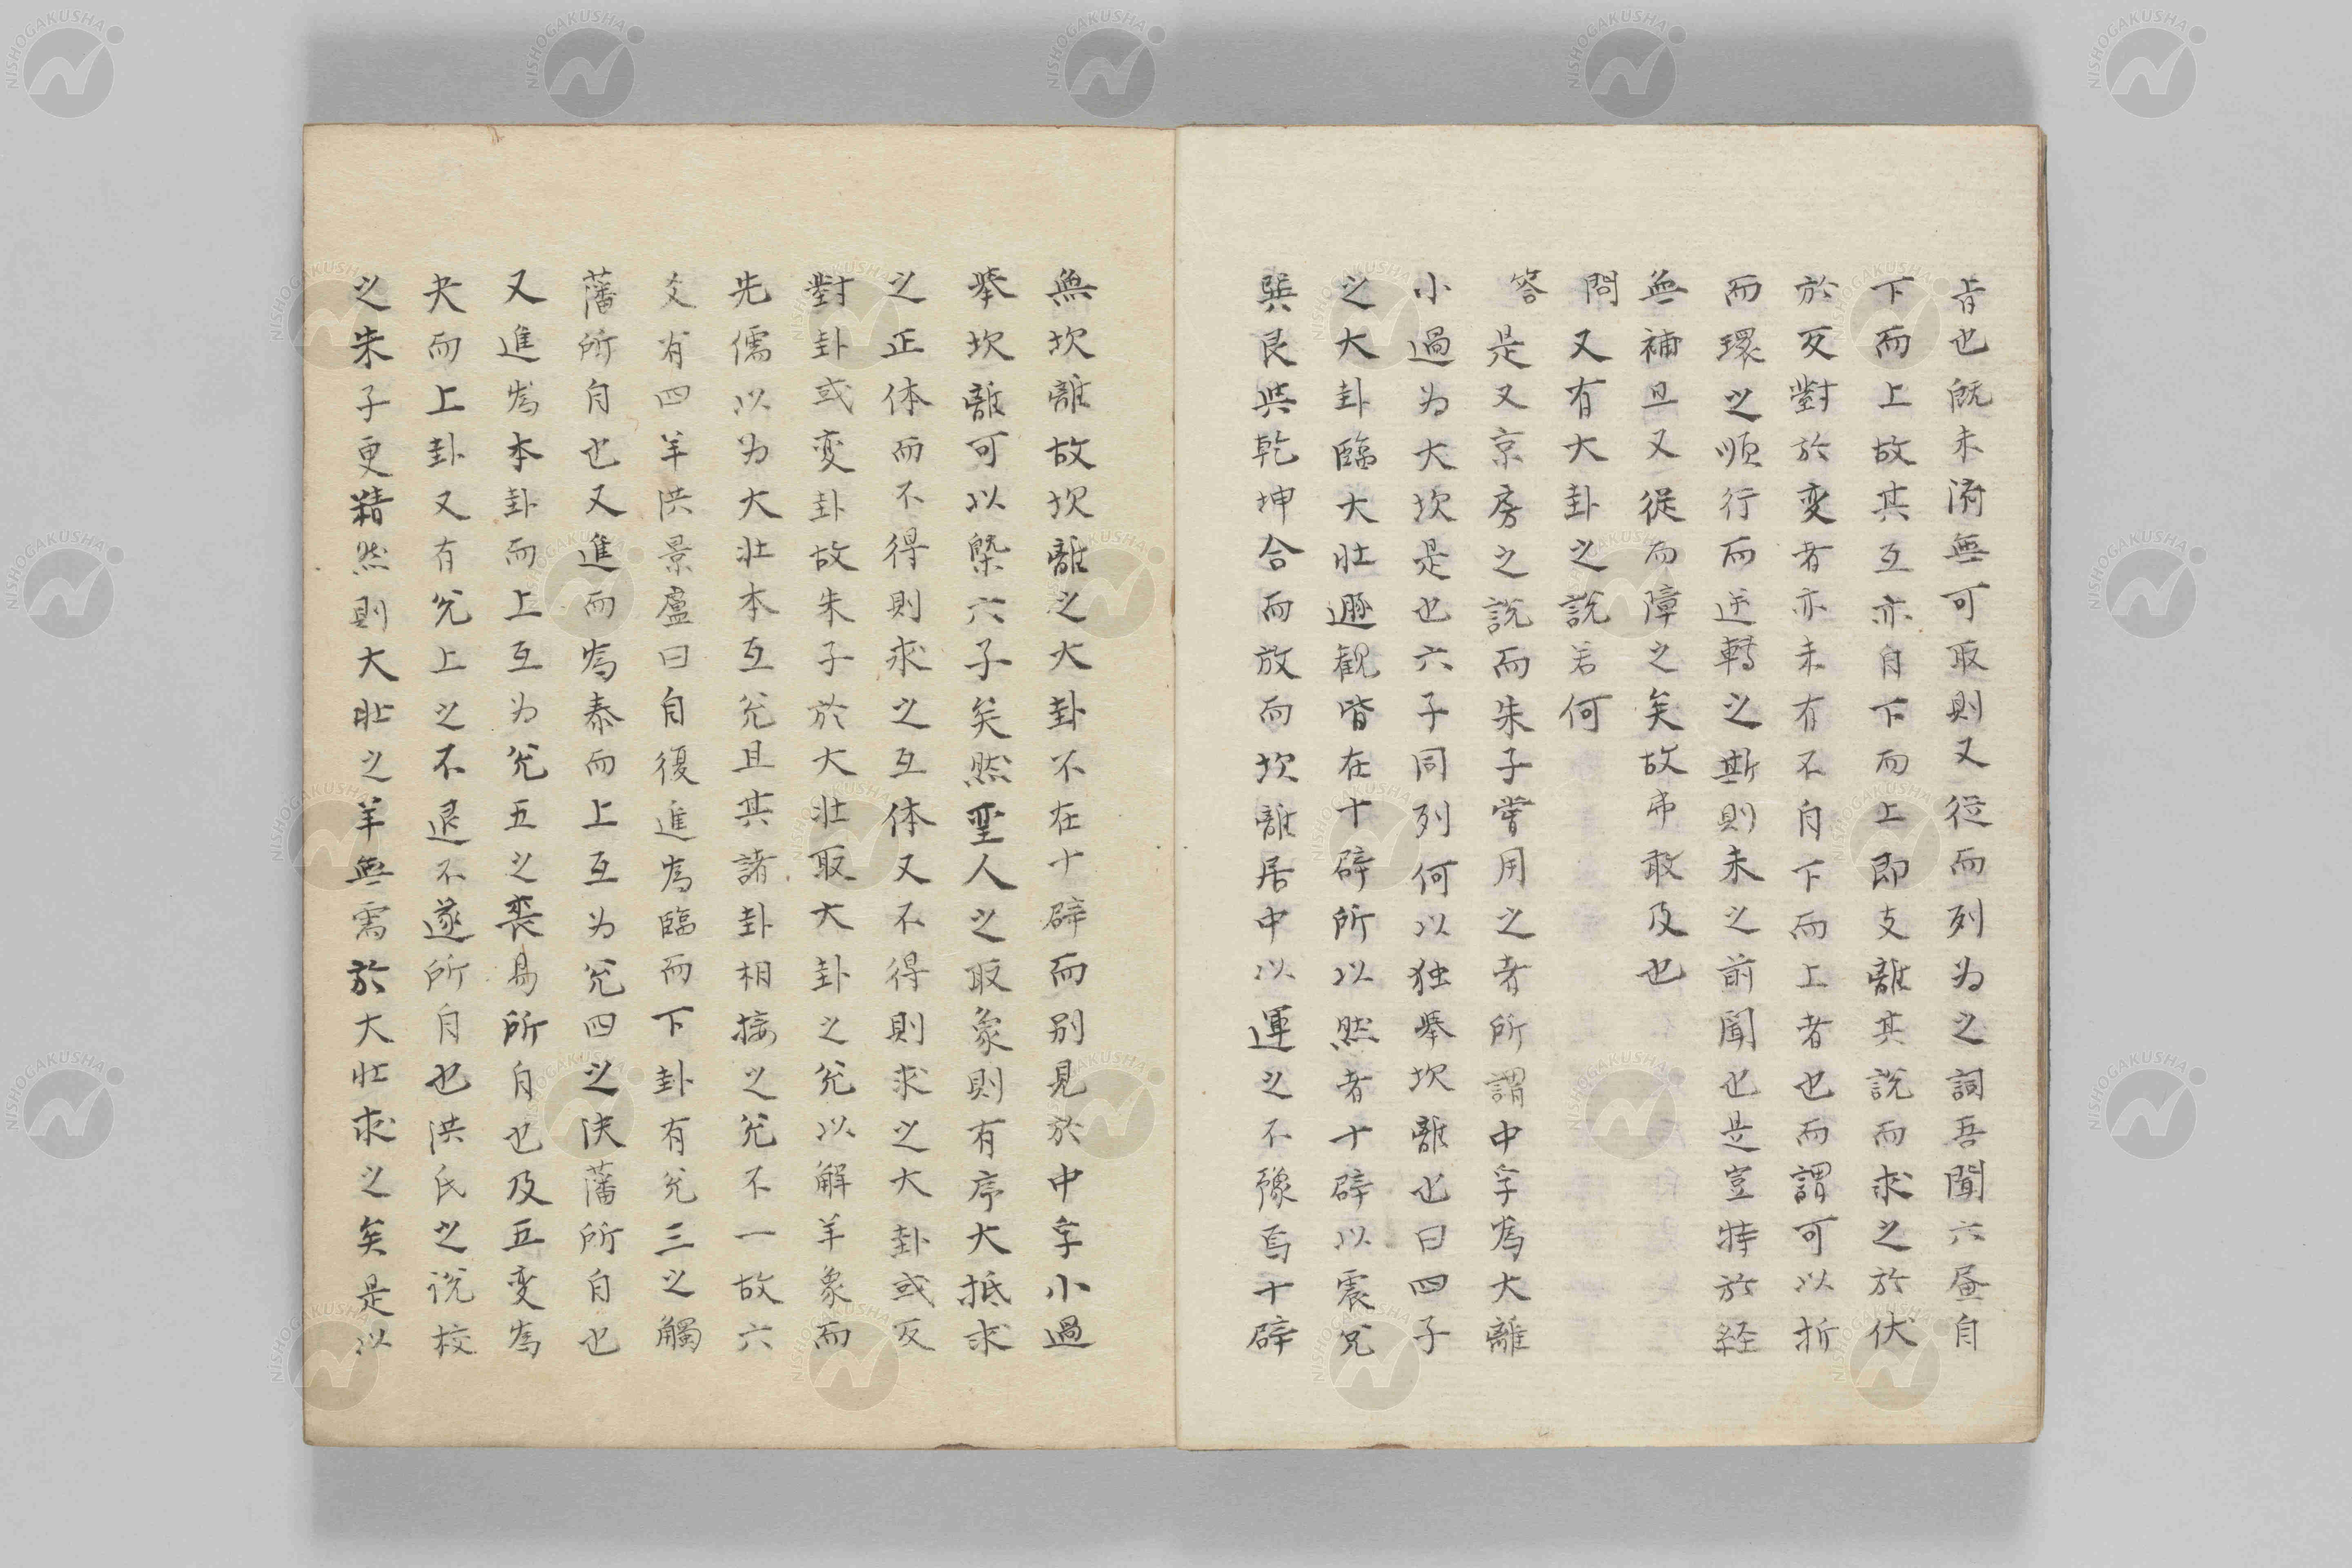 旹也既未済無可取則又從而列为之詞吾聞六昼自
下而上故其互亦自下而上即支離其說而求之於伏
於反對於变者亦未有不自下而上者也而謂可以折
而環之順行而逆轉之斯則未之前聞也是豈特於経
無補且又從而障之矣故弗敢及也
問又有大卦之說若何
答是又京房之說而朱子嘗用之者所謂中孚為大離
小過为大坎是也六子同列何以独舉坎離也曰四子
之大卦臨大壯遯観皆在十辟所以然者十辟以震兌
巽艮與乾坤合而放而坎離居中以運之不豫焉十辟
無坎離故坎離之大卦不在十辟而别見於中孚小過
舉坎離可以槩六子矣然聖人之取象則有序大抵求
之正体而不得則求之互体又不得則求之大卦或反
對卦或变卦故朱子於大壮取大卦之兌以解羊象而
先儒以为大壮本互兌且其諸卦相接之兌不一故六
爻有四羊洪景盧曰自復進為臨而下卦有兌三之觸
藩所自也又進而為泰而上互为兌四之决藩所自也
又進為本卦而上互为兌五之喪易所自也及五变為
夬而上卦又有兌上之不退不遂所自也洪氏之説校
之朱子更精然則大壮之羊無需於大壮求之矣是以
NISHOGAKUSHA